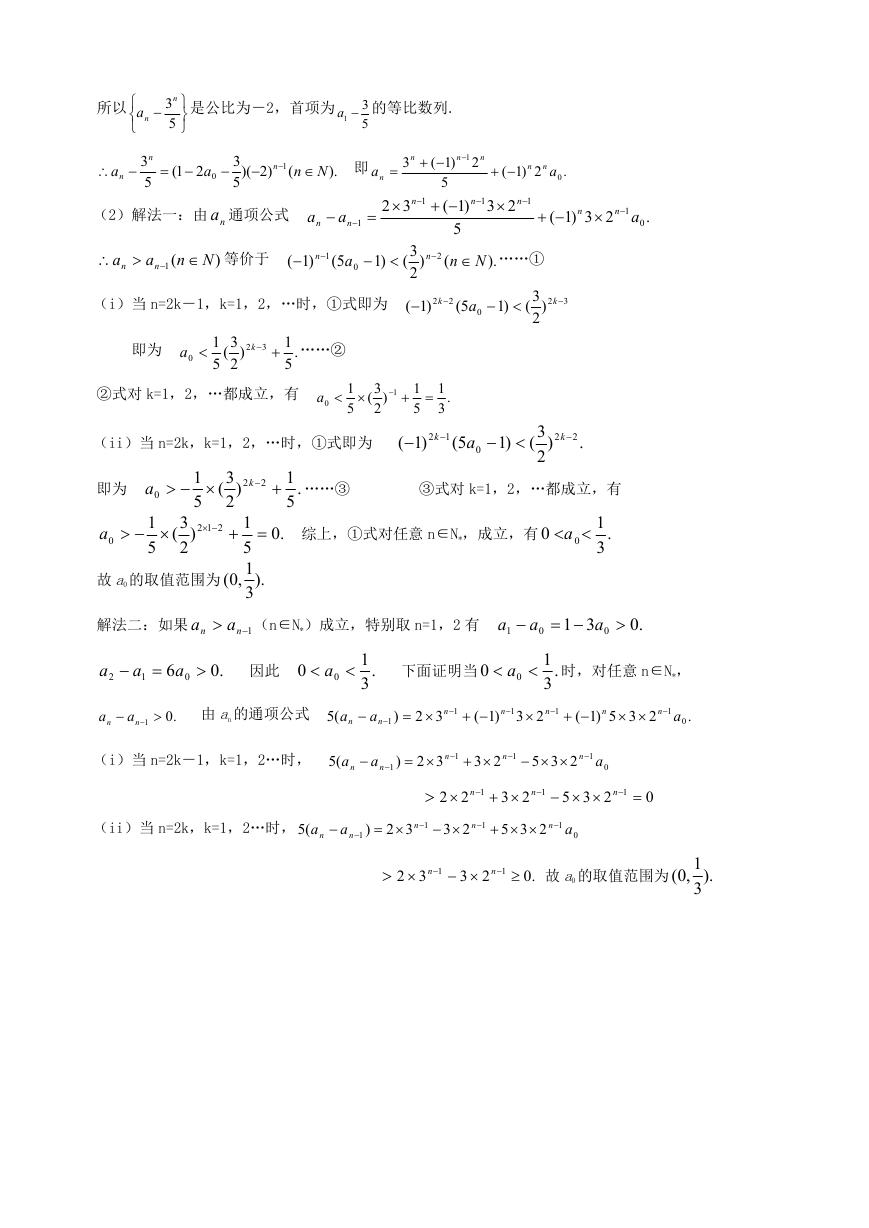 所以 {aₙ − 3ⁿ/5} 是公比为－2，首项为 a₁ − 3/5 的等比数列.
∴ aₙ − 3ⁿ/5 = (1 − 2a₀ − 3/5)(−2)ⁿ⁻¹ (n ∈ N). 即 aₙ = (3ⁿ + (−1)ⁿ⁻¹2ⁿ)/5 + (−1)ⁿ2ⁿa₀.
（2）解法一：由 aₙ 通项公式 aₙ − aₙ₋₁ = (2×3ⁿ⁻¹ + (−1)ⁿ⁻¹3×2ⁿ⁻¹)/5 + (−1)ⁿ3×2ⁿ⁻¹a₀.
∴ aₙ > aₙ₋₁ (n ∈ N) 等价于 (−1)ⁿ⁻¹(5a₀ − 1) < (3/2)ⁿ⁻² (n ∈ N). ……①
（i）当 n=2k－1，k=1，2，…时，①式即为 (−1)²ᵏ⁻²(5a₀ − 1) < (3/2)²ᵏ⁻³
即为 a₀ < 1/5(3/2)²ᵏ⁻³ + 1/5. ……②
②式对 k=1，2，…都成立，有 a₀ < 1/5 × (3/2)⁻¹ + 1/5 = 1/3.
（ii）当 n=2k，k=1，2，…时，①式即为 (−1)²ᵏ⁻¹(5a₀ − 1) < (3/2)²ᵏ⁻².
即为 a₀ > −1/5 × (3/2)²ᵏ⁻² + 1/5. ……③ ③式对 k=1，2，…都成立，有
a₀ > −1/5 × (3/2)²ˣ¹⁻² + 1/5 = 0. 综上，①式对任意 n∈N*，成立，有 0 < a₀ < 1/3.
故 a₀ 的取值范围为 (0, 1/3).
解法二：如果 aₙ > aₙ₋₁（n∈N*）成立，特别取 n=1，2 有 a₁ − a₀ = 1 − 3a₀ > 0.
a₂ − a₁ = 6a₀ > 0. 因此 0 < a₀ < 1/3. 下面证明当 0 < a₀ < 1/3. 时，对任意 n∈N*，
aₙ − aₙ₋₁ > 0. 由 aₙ 的通项公式 5(aₙ − aₙ₋₁) = 2×3ⁿ⁻¹ + (−1)ⁿ⁻¹3×2ⁿ⁻¹ + (−1)ⁿ5×3×2ⁿ⁻¹a₀.
（i）当 n=2k－1，k=1，2…时， 5(aₙ − aₙ₋₁) = 2×3ⁿ⁻¹ + 3×2ⁿ⁻¹ − 5×3×2ⁿ⁻¹a₀
> 2×2ⁿ⁻¹ + 3×2ⁿ⁻¹ − 5×3×2ⁿ⁻¹ = 0
（ii）当 n=2k，k=1，2…时，5(aₙ − aₙ₋₁) = 2×3ⁿ⁻¹ − 3×2ⁿ⁻¹ + 5×3×2ⁿ⁻¹a₀
> 2×3ⁿ⁻¹ − 3×2ⁿ⁻¹ ≥ 0. 故 a₀ 的取值范围为 (0, 1/3).